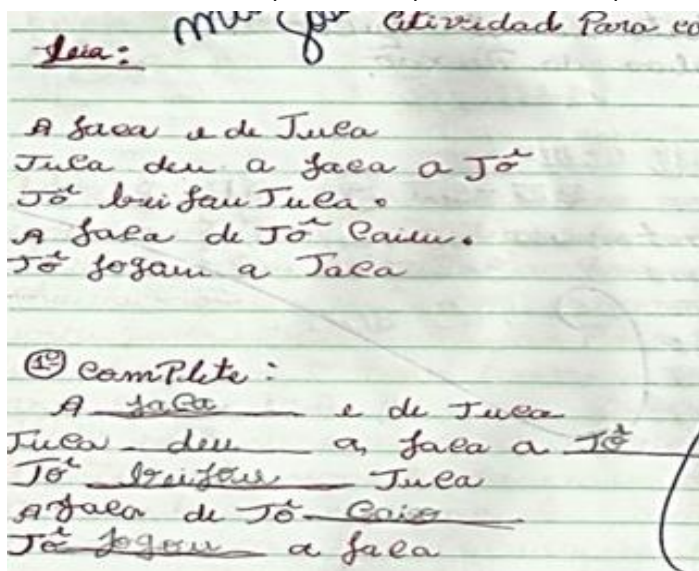 Atividad Para co
Leia:
A jaca e de Juca
Juca deu a jaca a Jô
Jô beijau Juca.
A jaca de Jô Caiu.
Jô jogau a Jaca
1º Complete:
A jaca e de Juca
Juca deu a jaca a Jô
Jô beijou Juca
A jaca de Jô Caio
Jô jogou a jaca